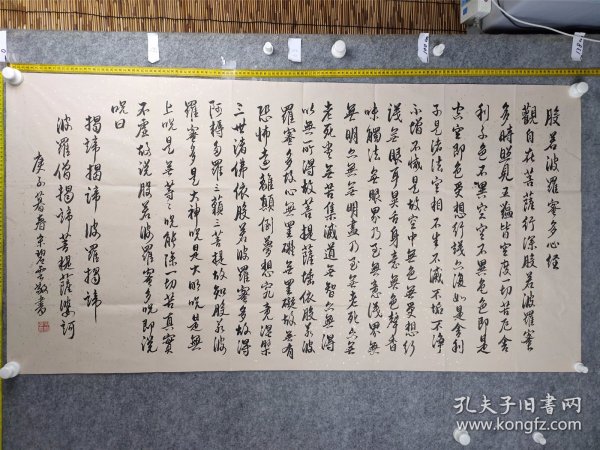 般若波羅蜜多心經
觀自在菩薩行深般若波羅蜜
多時照見五蘊皆空度一切苦厄舍
利子色不異空空不異色色即是
空空即是色受想行識亦復如是舍利
子是諸法空相不生不滅不垢不淨
不增不減是故空中無色無受想行
識無眼耳鼻舌身意無色聲香
味觸法無眼界乃至無意識界無
無明亦無無明盡乃至無老死亦無
老死盡無苦集滅道無智亦無得
以無所得故菩提薩埵依般若波
羅蜜多故心無罣礙無罣礙故無有
恐怖遠離顛倒夢想究竟涅槃
三世諸佛依般若波羅蜜多故得
阿耨多羅三藐三菩提故知般若波
羅蜜多是大神咒是大明咒是無
上咒是無等等咒能除一切苦真實
不虛故說般若波羅蜜多咒即說
咒曰
揭諦揭諦波羅揭諦
波羅僧揭諦菩提薩婆訶
庚子暮春宋碧雲敬書
孔夫子旧書网
www.kongfz.com